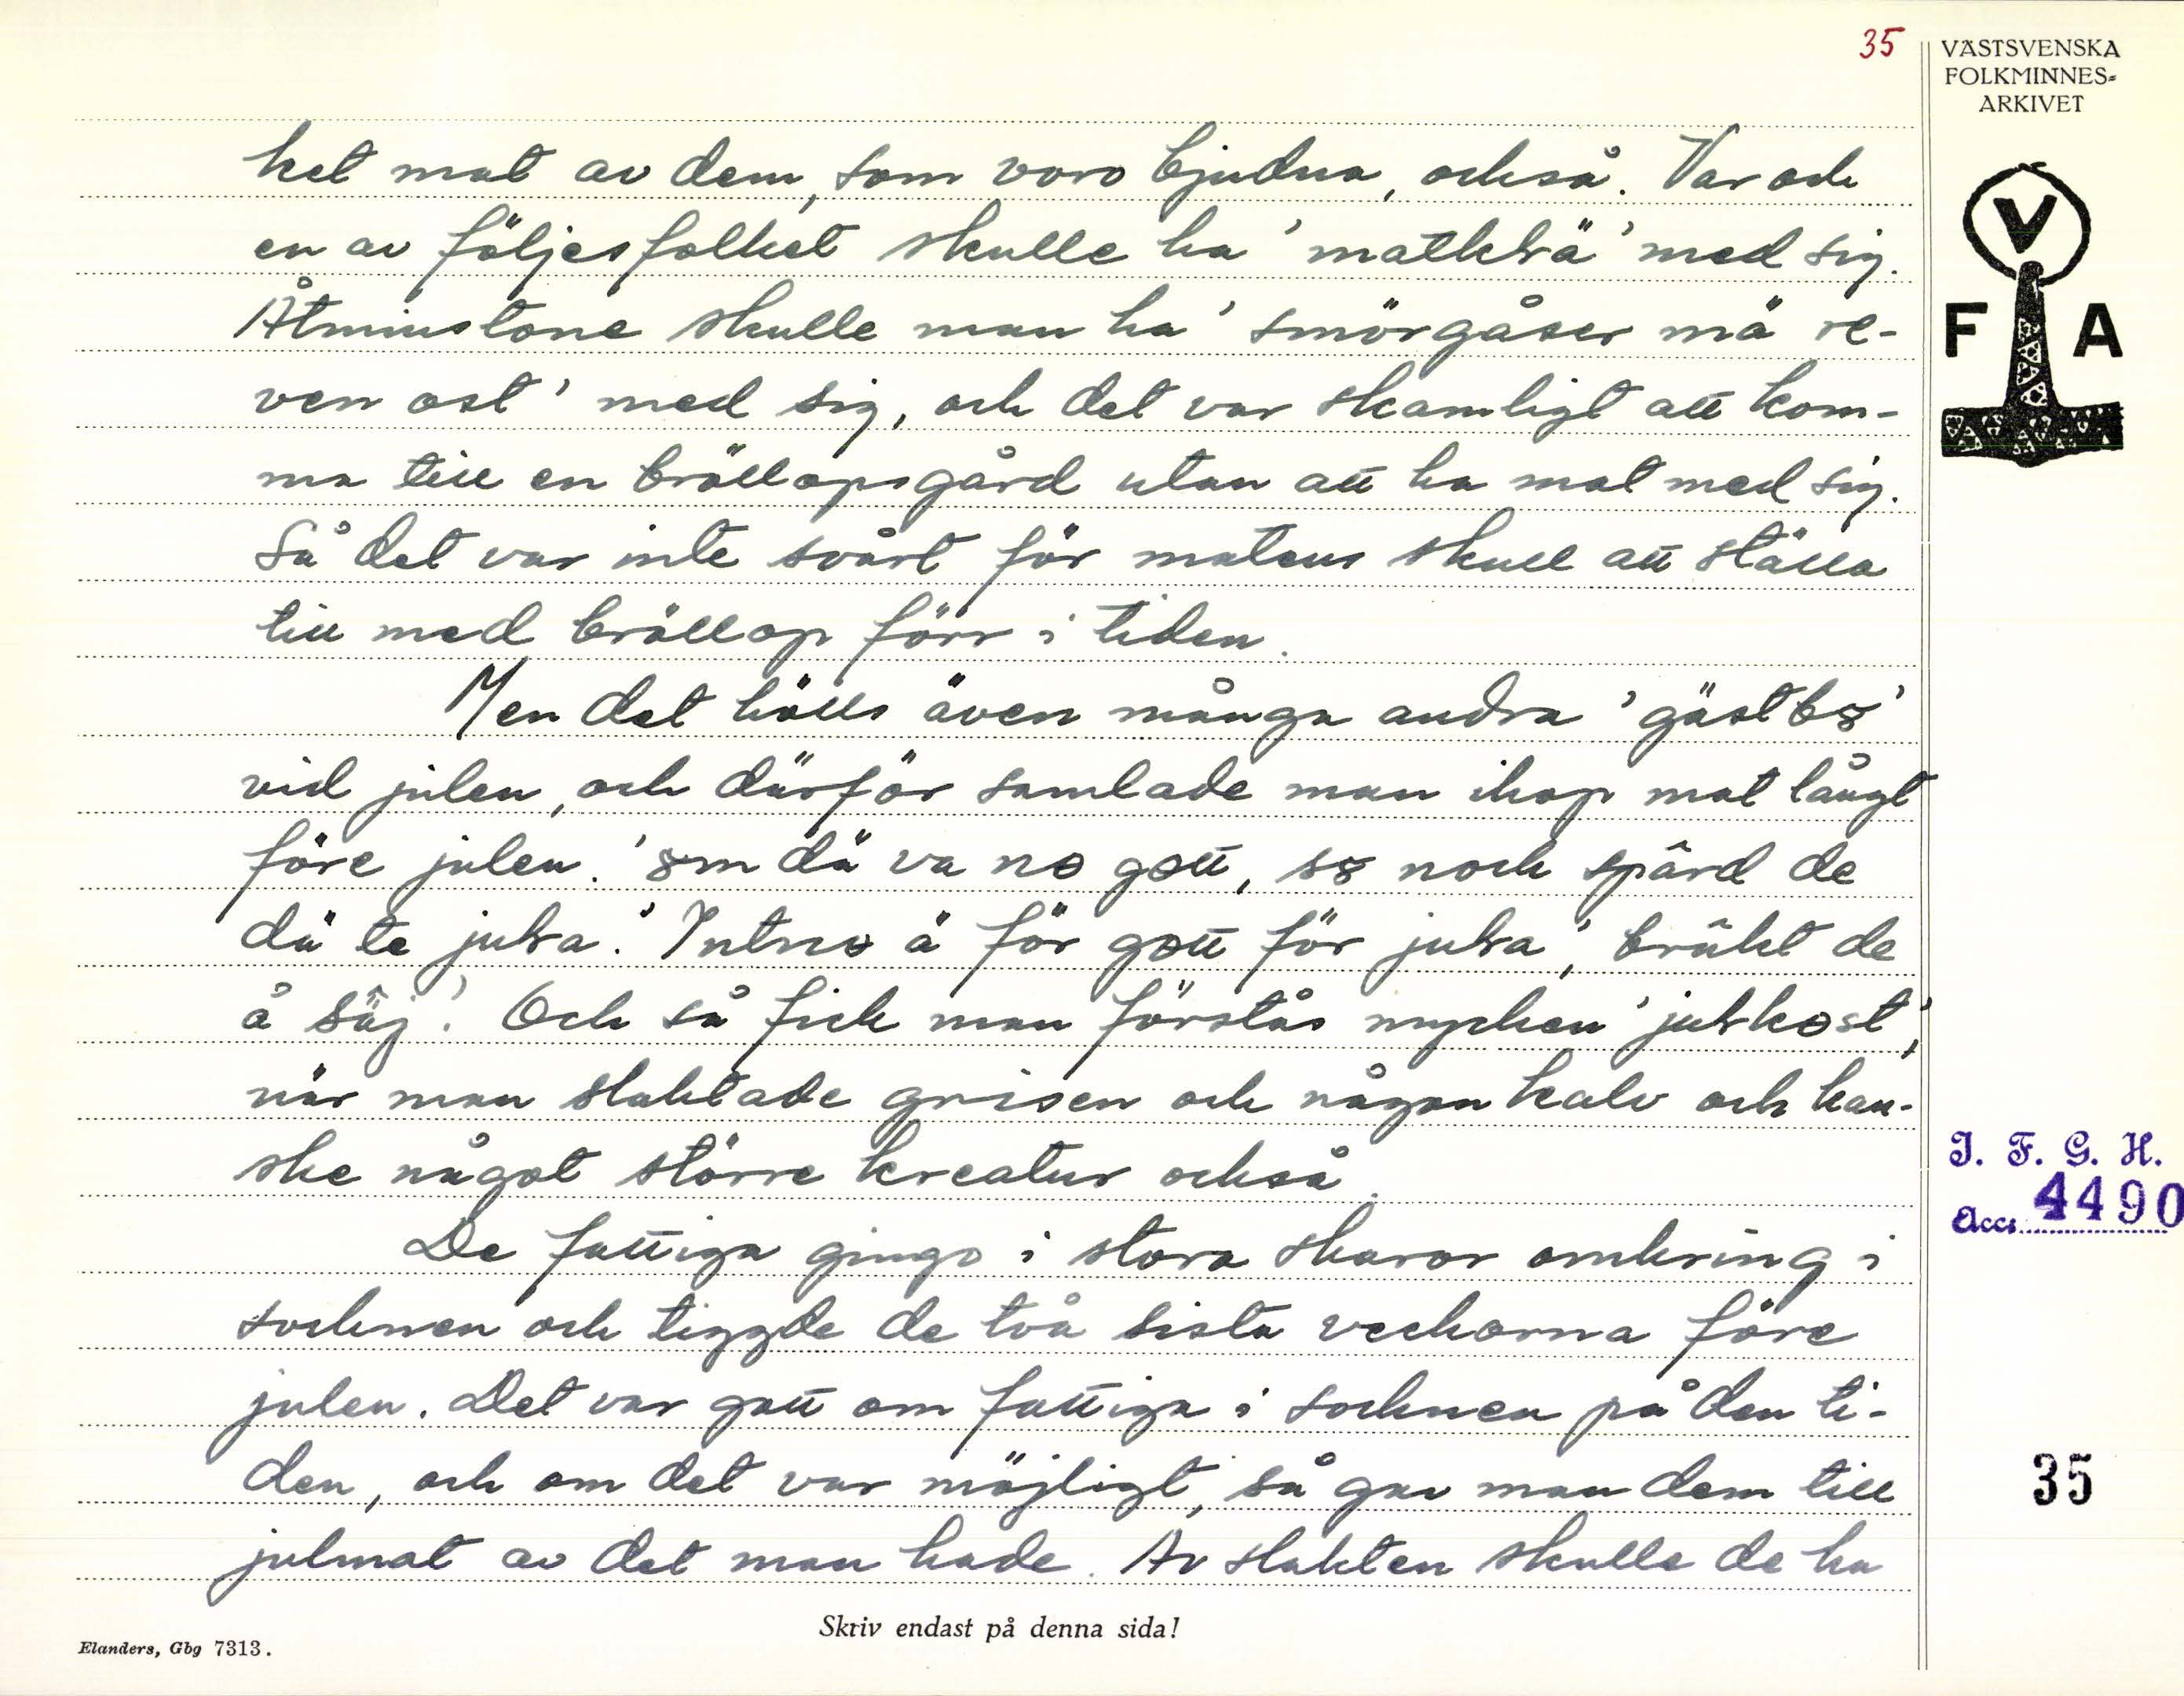 35
VÄSTSVENSKA
FOLKMINNES-
ARKIVET
V
F A
ket mat av dem, som voro bjudna, också. Var och
en av följesfolket skulle ha 'matklä' med sig.
Åtminstone skulle man ha 'smörgåser mä re-
ven ost' med sig, och det var skamligt att kom-
ma till en bröllopsgård utan att ha mat med sig.
Så det var inte svårt för matens skull att ställa
till med bröllop förr i tiden.
Men det hölls även många andra 'gästbȣ'
vid julen, och därför samlade man ihop mat långt
före julen. 'ȣm dä va nɵ gɵtt, sȣ nock spârd de
dä te jula.' 'Intnɵ ä för gɵtt för jula', brûkt de
å sâj.' Och så fick man förstås mycken 'julkɵst',
när man slaktade grisen och någon kalv och kan-
ske något större kreatur också.
De fattiga gingo i stora skaror omkring i
socknen och tiggde de två sista veckorna före
julen. Det var gott om fattiga i socknen på den ti-
den, och om det var möjligt, så gav man dem till
julmat av det man hade. Av slakten skulle de ha
I. F. G. H.
Accs. 4490
35
Skriv endast på denna sida!
Elanders, Gbg 7313.